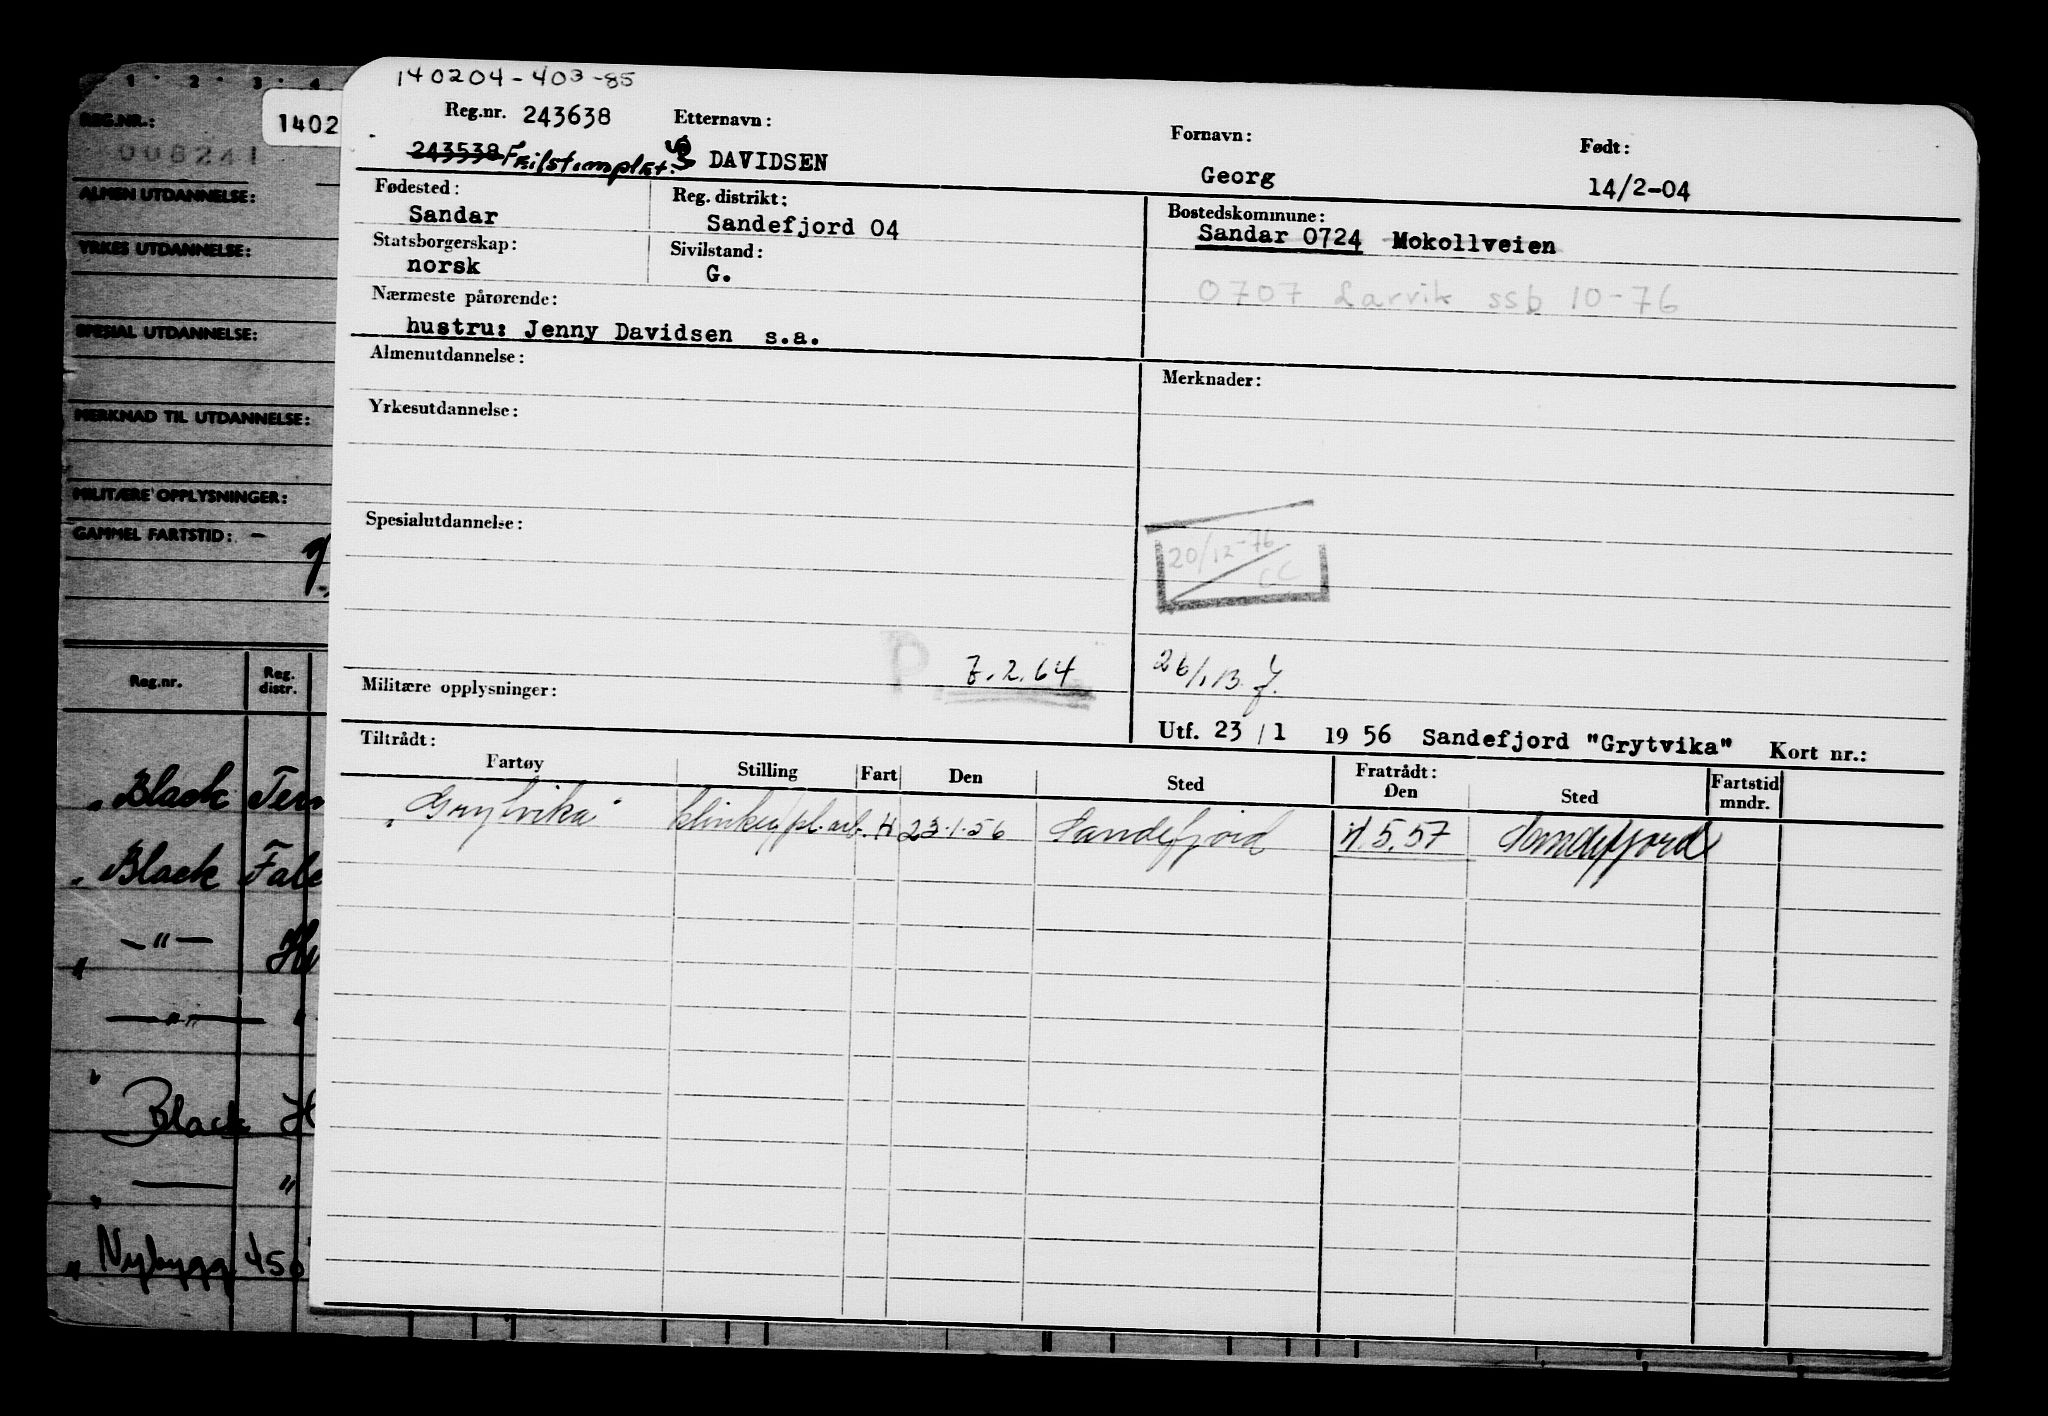 1 2 3 4
REG.NR.:
1402
008241
ALMEN UTDANNELSE:
YRKES UTDANNELSE:
SPESIAL UTDANNELSE:
MERKNAD TIL UTDANNELSE:
MILITÆRE OPPLYSNINGER:
GAMMEL FARTSTID: -
Reg.nr.
Reg. distr.
" Black
" Black
— " —
— " —
" Black
— "
" Nybygg 450
140204-403-85
Reg.nr. 243638
243538 Feilstemplet.
Etternavn:
DAVIDSEN
Fornavn:
Georg
Født:
14/2-04
Fødested:
Sandar
Reg. distrikt:
Sandefjord 04
Bostedskommune:
Sandar 0724 Mokollveien
Statsborgerskap:
norsk
Sivilstand:
G.
0707 Larvik ssb 10-76
Nærmeste pårørende:
hustru: Jenny Davidsen s.a.
Almenutdannelse:
Merknader:
Yrkesutdannelse:
Spesialutdannelse:
20/12-76
CC
P. 7.2.64
Militære opplysninger:
Utf. 23/1 1956 Sandefjord "Grytvika" Kort nr.:
Tiltrådt:
Fartøy Stilling Fart Den Sted
Fratrådt:
Den Sted
Fartstid mndr.
"Grytvika" klinker/pl.arb. H 23.1.56 Sandefjord 5.57 Sandefjord